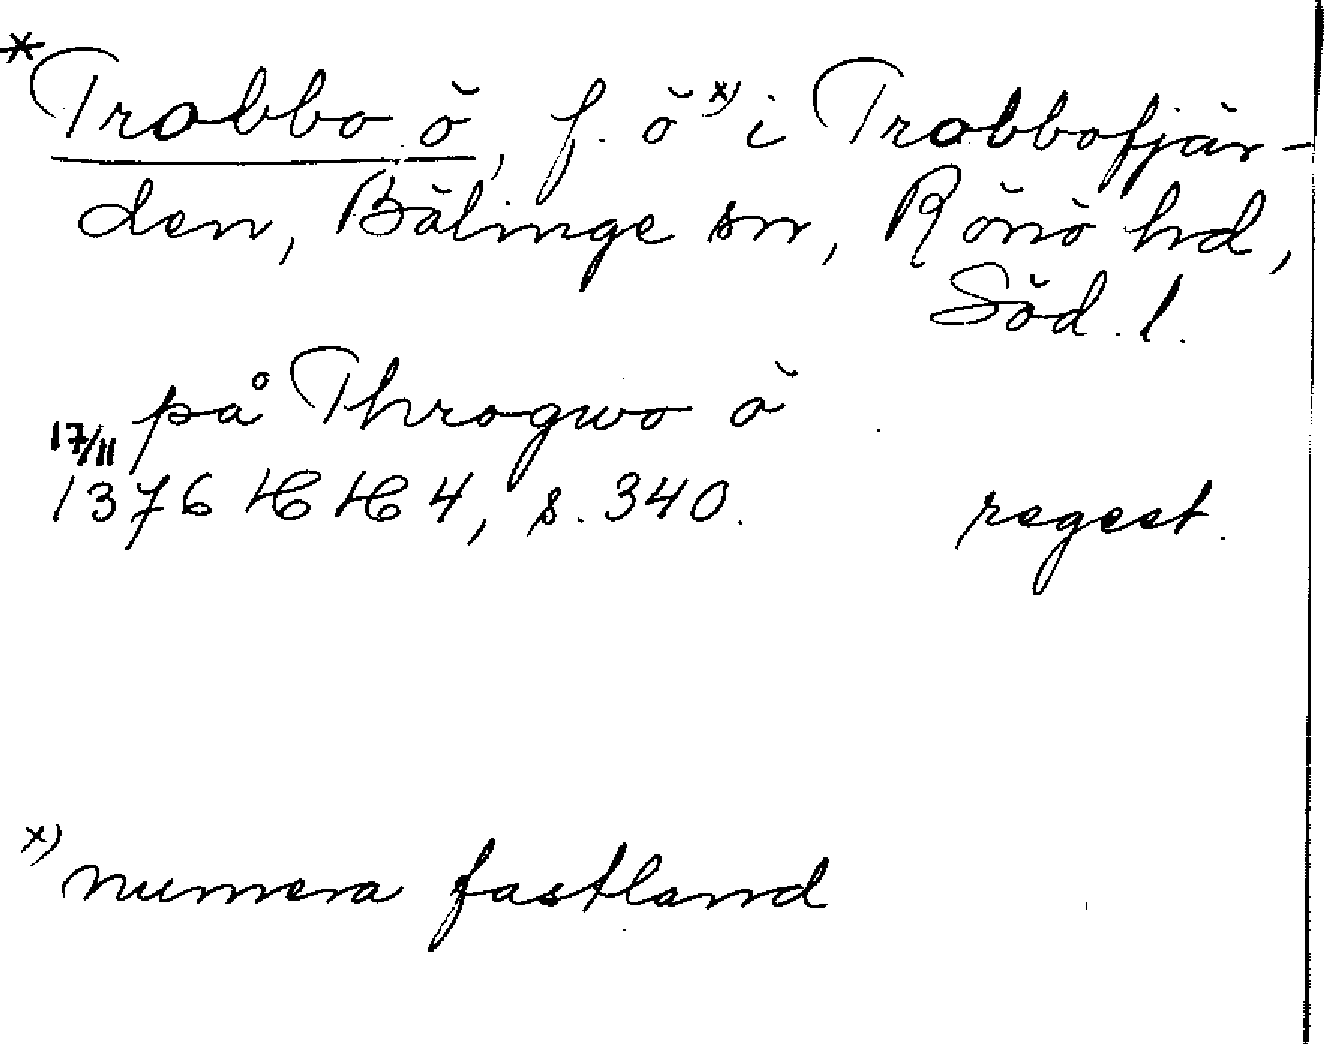 *Trobbo ö, f. ö x) i Trobbofjär-
den, Bälinge sn, Rönö hd,
Söd. l.
på Throgwo ö
17/11
1376 HH 4, s. 340. regest.
x) numera fastland